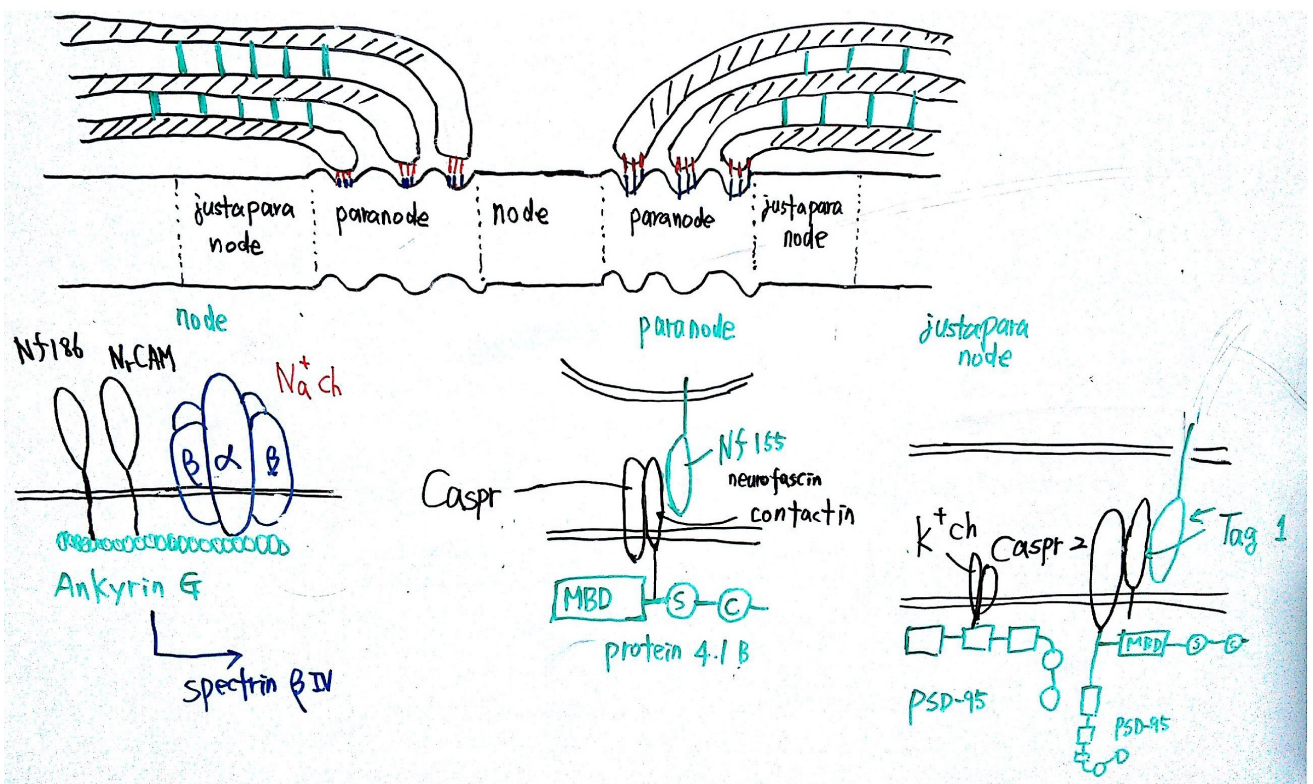 justapara
node
paranode
node
paranode
justapara
node
node
Nf186
NrCAM
Na+ ch
β
α
β
Ankyrin G
spectrin β IV
paranode
Caspr
Nf 155
neurofascin
contactin
MBD
S
C
protein 4.1 B
justapara
node
K+ ch
Caspr 2
Tag 1
MBD
S
C
PSD-95
PSD-95